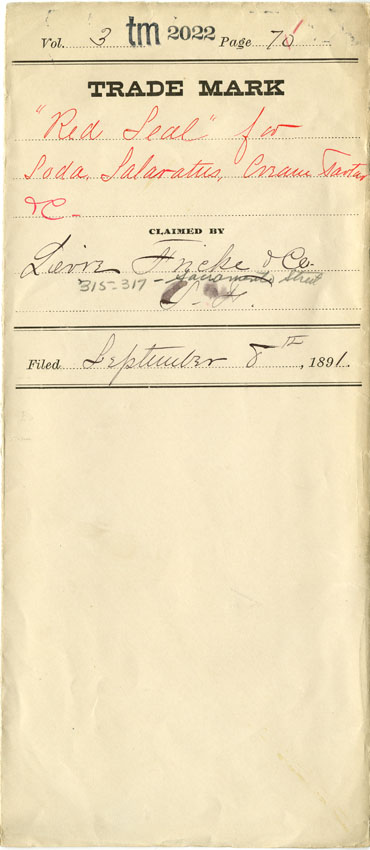 Vol. 3 tm 2022 Page 76
TRADE MARK
"Red Seal" for
Soda, Salaratus, Cream Tartar
&C-
CLAIMED BY
Lievre Fricke & Co.
315-317- Sacramento Street
S. F.
Filed September 8th, 1891.